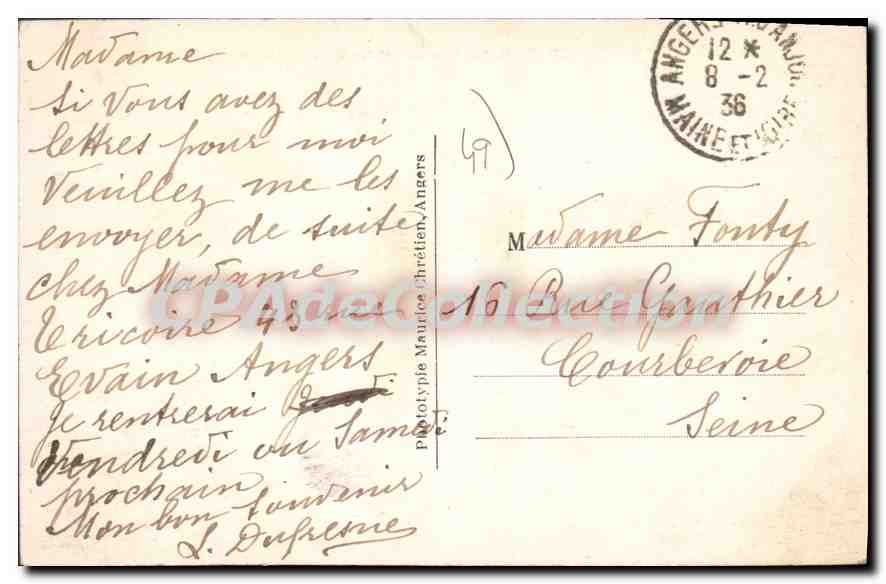 Madame
si vous avez des
lettres pour moi
Veuillez me les
envoyer, de suite
chez Madame
Tricoire 48 rue
Evain Angers
Je rentrerai
Vendredi ou Samedi
prochain
Mon bon souvenir
L. Dufresne
Phototypie Maurice Chrétien, Angers
49)
ANGERS D'ANJOU
12 *
8 - 2
36
MAINE ET LOIRE
Madame Fonty
16 Rue Gauthier
Courbevoie
Seine
CPAdeCollection